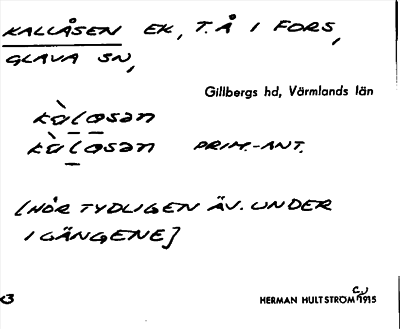 KALLÅSEN EK, T. Å I FORS,
GLAVA SN,
Gillbergs hd, Värmlands län
kàlosən
kàlosən PRIM.-ANT.
[HÖR TYDLIGEN ÄV. UNDER
I GÄNGENE]
3 HERMAN HULTSTRÖM 1915